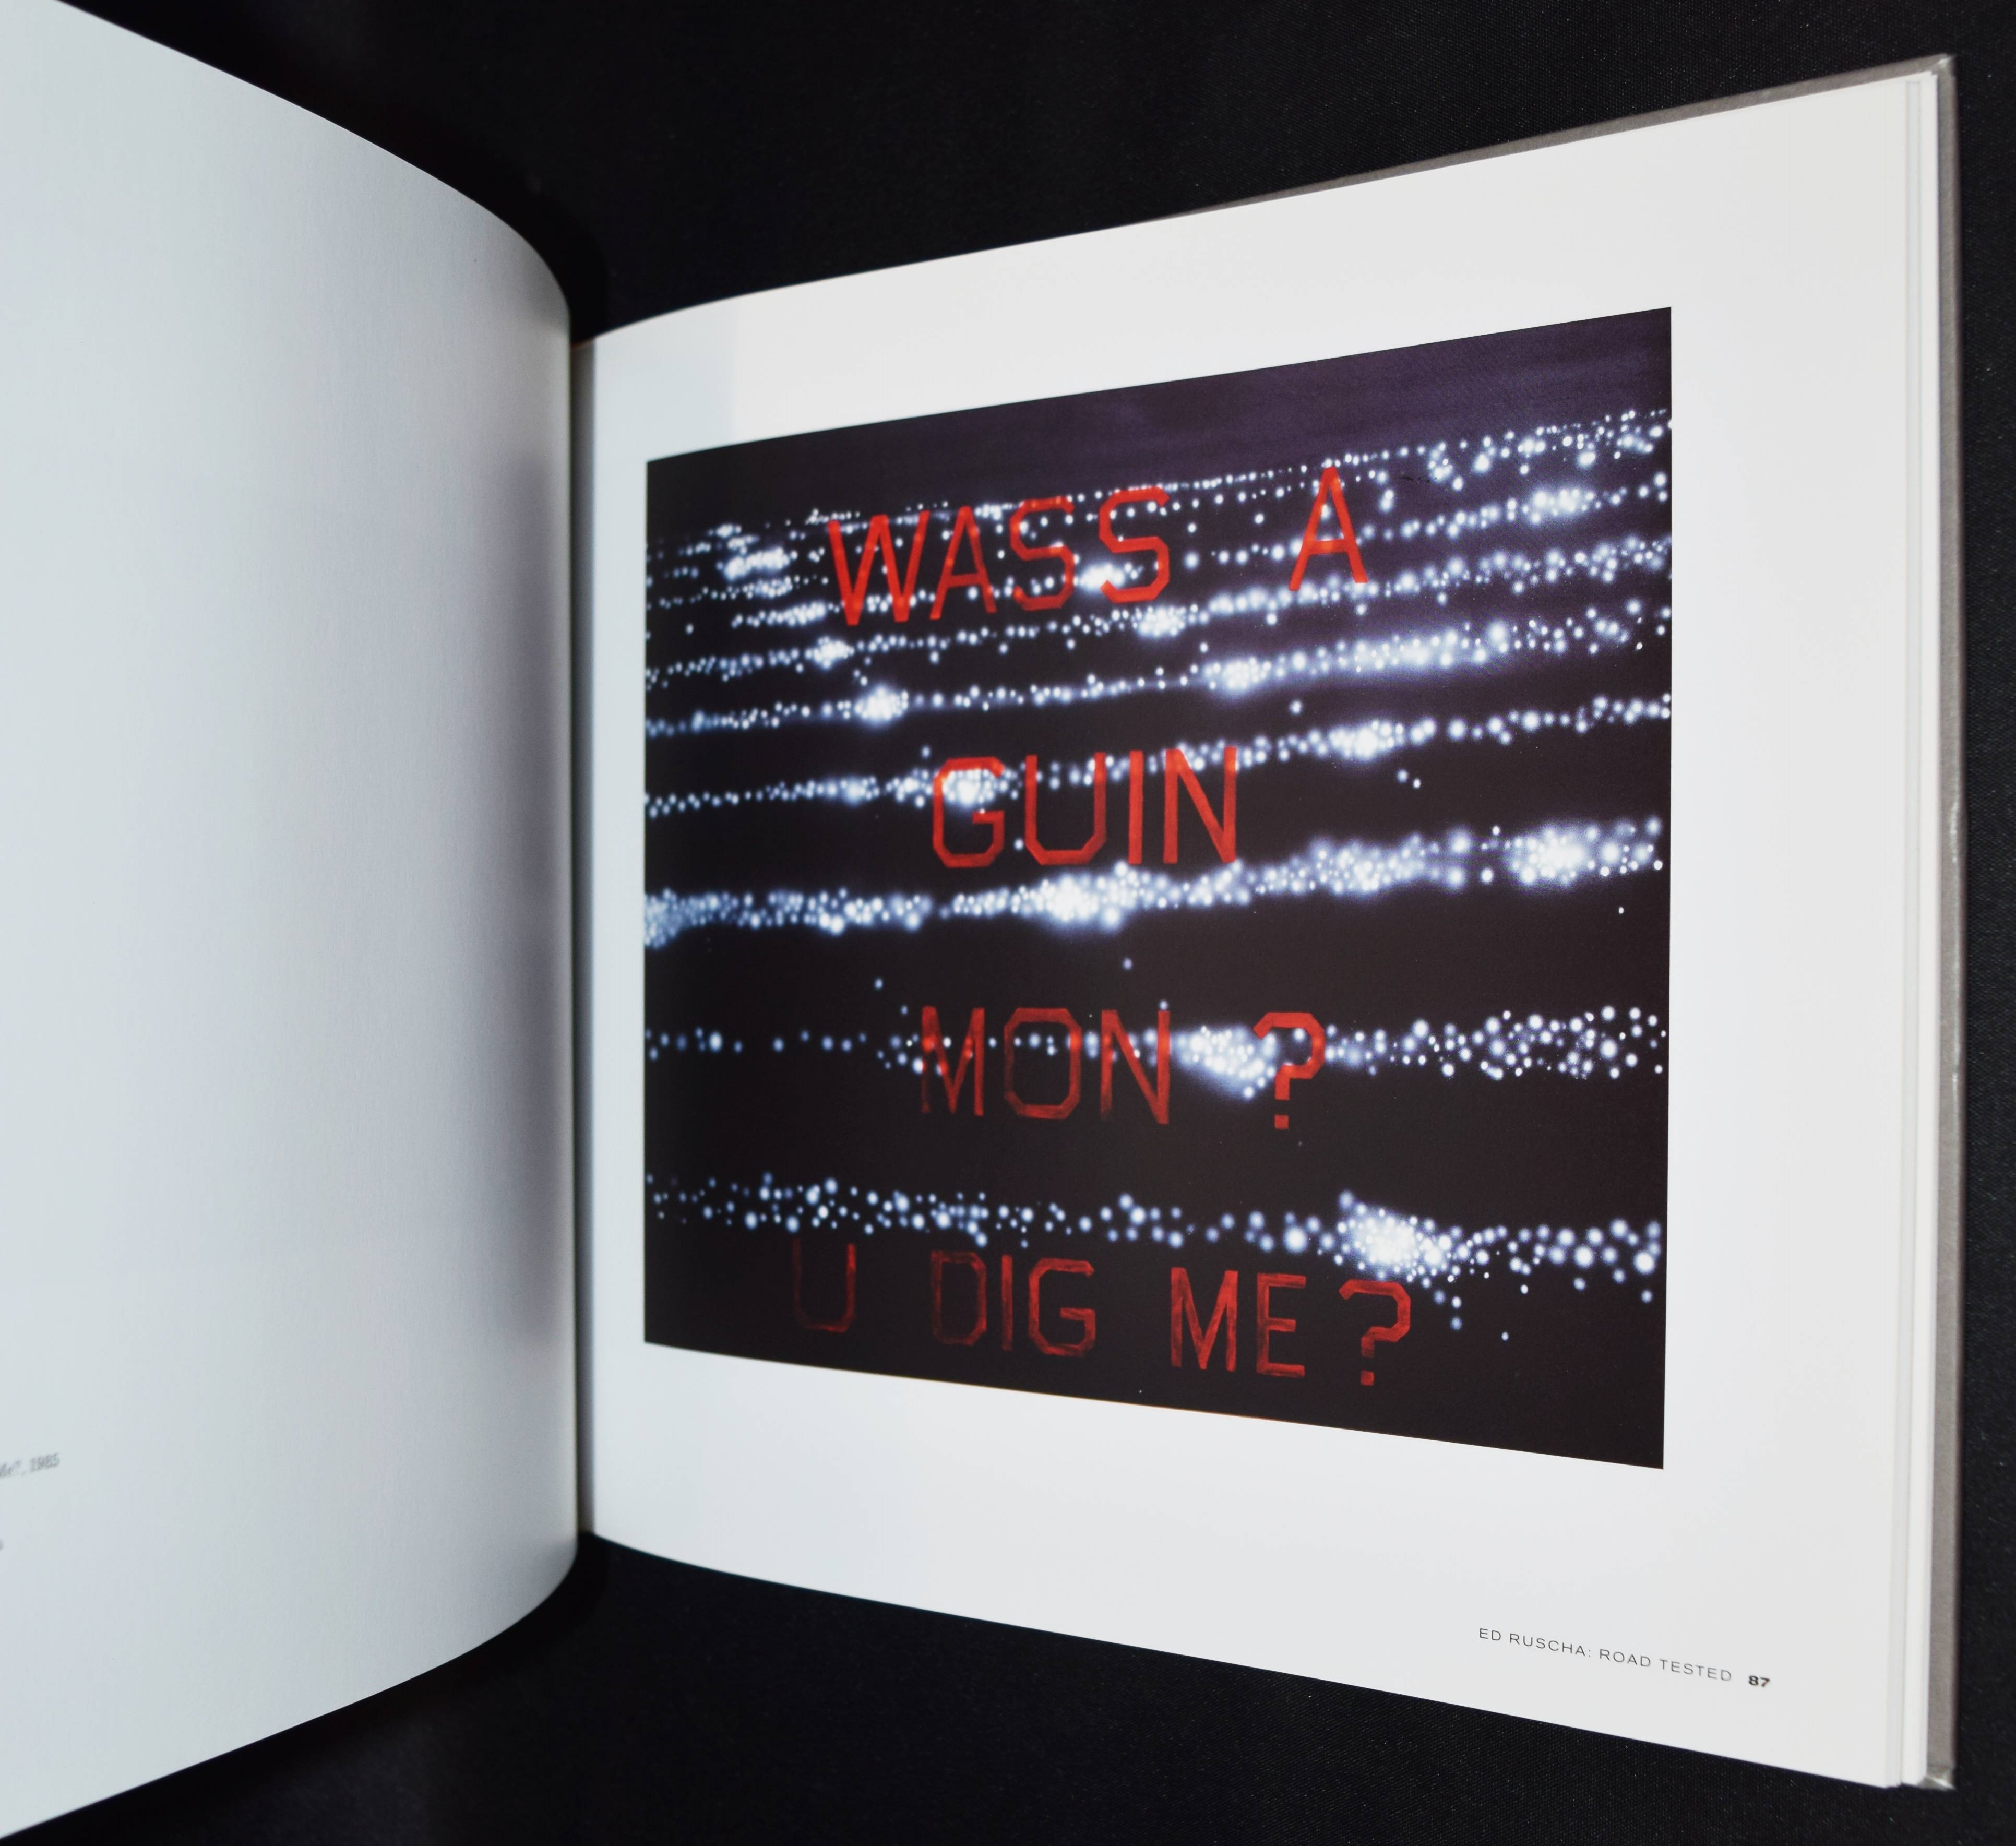 Me?, 1985
WASS A
GUIN
MON ?
U DIG ME?
ED RUSCHA: ROAD TESTED 87